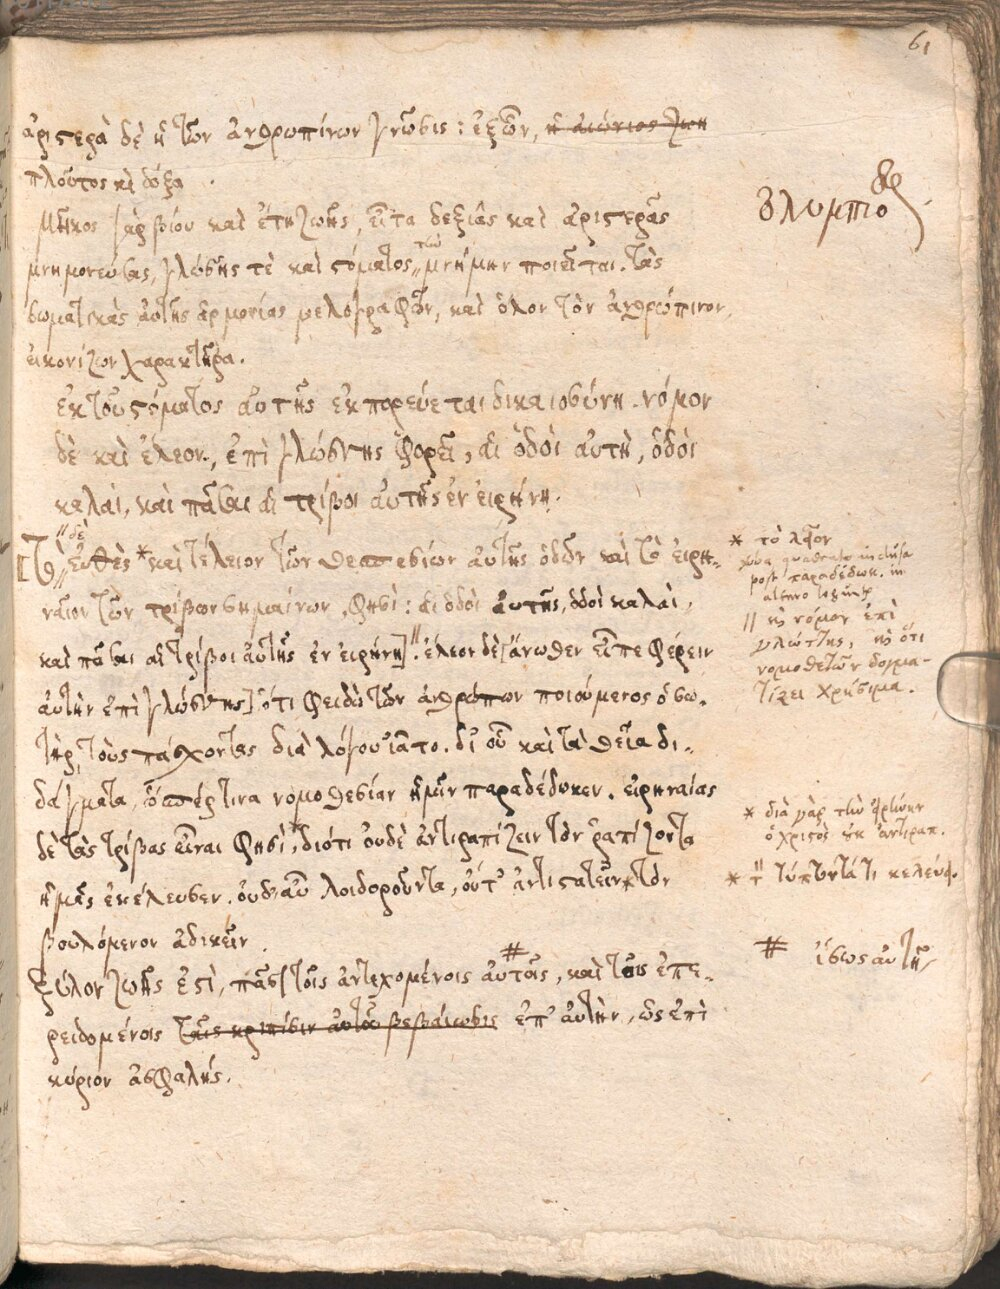 61
ἀριστερὰ δὲ ἡ τῶν ἀνθρωπίνων γνῶσις: ἐξ ὧν, ἡ αἰώνιος ζωὴ
πλοῦτος καὶ δόξα.
Ὀλυμπιοδ
Μῆκος γὰρ βίου καὶ ἔτη ζωῆς, εἶτα δεξιᾶς καὶ ἀριστερᾶς
μνημονεύσας, γλώσσης τὲ καὶ στόματος τὴν μνήμην ποιεῖται. τὰς
σωματικὰς αὐτῆς ἁρμονίας μελογραφῶν, καὶ ὅλον τὸν ἀνθρώπινον
εἰκονίζων χαρακτῆρα.
ἐκ τοῦ στόματος αὐτῆς ἐκπορεύεται δικαιοσύνη. νόμον
δὲ καὶ ἔλεον, ἐπὶ γλώσσης φορεῖ, αἱ ὁδοὶ αὐτῆ, ὁδοὶ
καλαὶ, καὶ πᾶσαι αἱ τρίβοι αὐτῆς ἐν εἰρήνη.
[Τὸ δὲ εὐθὲς * καὶ τέλειον τῶν θεσπεσίων αὐτῆς ὁδῶν καὶ τὸ εἰρη-
ναῖον τῶν τρίβων σημαίνων, φησί: αἱ ὁδοὶ αὐτῆς, ὁδοὶ καλαὶ,
καὶ πᾶσαι αἱ τρίβοι αὐτῆς ἐν εἰρήνη]. ἔλεον δὲ [ἄνωθεν εἶπε φέρειν
αὐτὴν ἐπὶ γλώσσης] ὅτι φειδὼ τῶν ἀνθρώπων ποιούμενος ὁ σω-
τὴρ, τοὺς πάσχοντας διὰ λόγου ἰᾶτο. δι' οὗ καὶ τὰ θεῖα δι-
δάγματα, ὥσπέρ τινα νομοθεσίαν ἡμῖν παραδέδωκεν. εἰρηναίας
δὲ τὰς τρίβας εἶναι φησὶ, διότι οὐδὲ ἀντιραπίζειν τὸν ῥαπίζοντα
ἡμᾶς ἐκέλευσεν. οὐδ' αὖ λοιδοροῦντα, οὔτ' ἀντιστατεῖν * τὸν
βουλόμενον ἀδικεῖν.
Ξύλον ζωῆς ἐστὶ, πᾶσι τοῖς ἀντεχομένοις αὐταῖς, καὶ τοῖς ἐπε-
ρειδομένοις ταῖς κρηπίσιν αὐτοῦ βεβαίωσις ἐπ' αὐτὴν, ὡς ἐπὶ
κύριον ἀσφαλής.
* τὸ λεῖον
quadrato inclusa
post παραδέδωκ. in
|| καὶ νόμον ἐπὶ
γλώττης, καὶ ὅτι
νομοθετῶν δογμα-
τίζει χρήσιμα.
* διὰ γὰρ τὴν εἰρήνην
ὁ χριστὸς οὐκ ἀντιραπ.
* τύπτοντά τι κελεύσ.
# ἴσως αὐτῆς